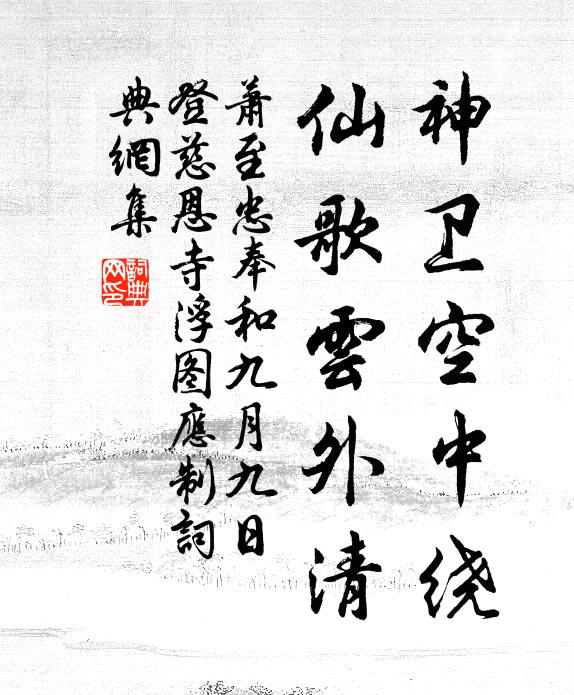 神卫空中绕
仙歌雲外清
萧至忠奉和九月九日
登慈恩寺浮图應制詞
典網集
詞典网印